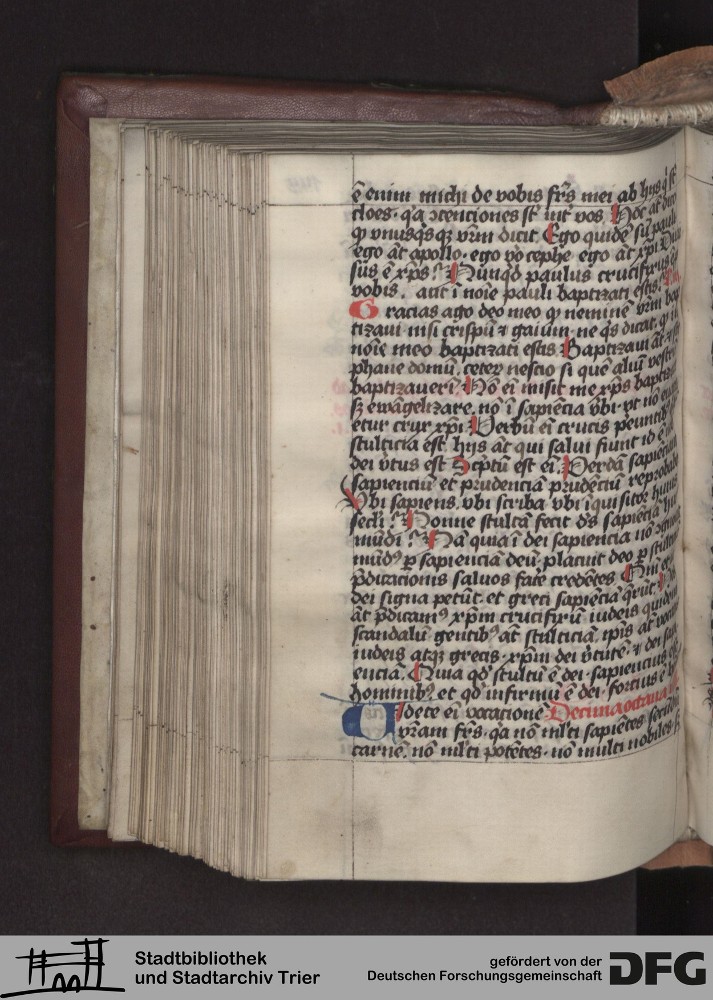 ē enim michi de vobis fr̄s mei ab hijs q̄ st̄
cloes · q̄a ↄtenciones st̄ int̄ vos Hoc at̄ dico
ꝙ vnusq̄sqꝫ vr̄m dicit Ego quidē sū pauli
ego āt apollo · ego v̊o cephe · ego āt xp̄i
sus ē xp̄s Nunqd̄ paulus crucifixus ē
vobis · aut ī noīe pauli baptizati estis
Gracias ago deo meo ꝙ neminē vr̄m bap
tizaui nisi crispū ⁊ gaium · ne q̄s dicat · ꝙ ī
noīe meo baptizati estis Baptizaui āt ⁊ ste
phane domū · ceteꝝ nescio si quē aliū vestrū
baptizauerī Nō ei misit me xp̄s baptizare
sꝫ ewāgelizare · nō ī sapiēcia v̄bi · vt nō
etur crux xp̄i Verbū ei crucis
stulticia est hijs āt qui salui fiunt id ē
dei v̄tus est Sc̄ptū est ei Perdā sapiēciā
sapienciū et prudenciā prudēciū reprobabo
Vbi sapiens · vbi scriba · vbi īquisitor huius
sec̄li Nonne stultā fecit d̄s sapiēciā hui
mūdi Nā quia ī dei sapiencia nō
mūdꝰ ꝑ sapienciā deū · placuit deo ꝑ stulticiā
p̄dicacionis saluos facē credētes
dei signa petūt · et greci sapiēciā q̄rūt
āt p̄dicamꝰ xp̄m crucifixū iudeis quidem
scandalū gentibꝰ āt stulticiā · ip̄is āt vocatis
iudeis atqꝫ grecis · xp̄m dei v̄tutē · ⁊ dei sapi
enciā · Quia qd̄ stultū ē dei · sapiencius est
hominibꝰ · et qd̄ infirmū ē dei · forcius ē
Videte ei vocacionē Decimaoctaua
vr̄am fr̄s · q̄a nō ml̄ti sapiētes scd̄m
carnē · nō ml̄ti potētes · nō multi nobiles sꝫ
Stadtbibliothek
und Stadtarchiv Trier
gefördert von der
Deutschen Forschungsgemeinschaft
DFG